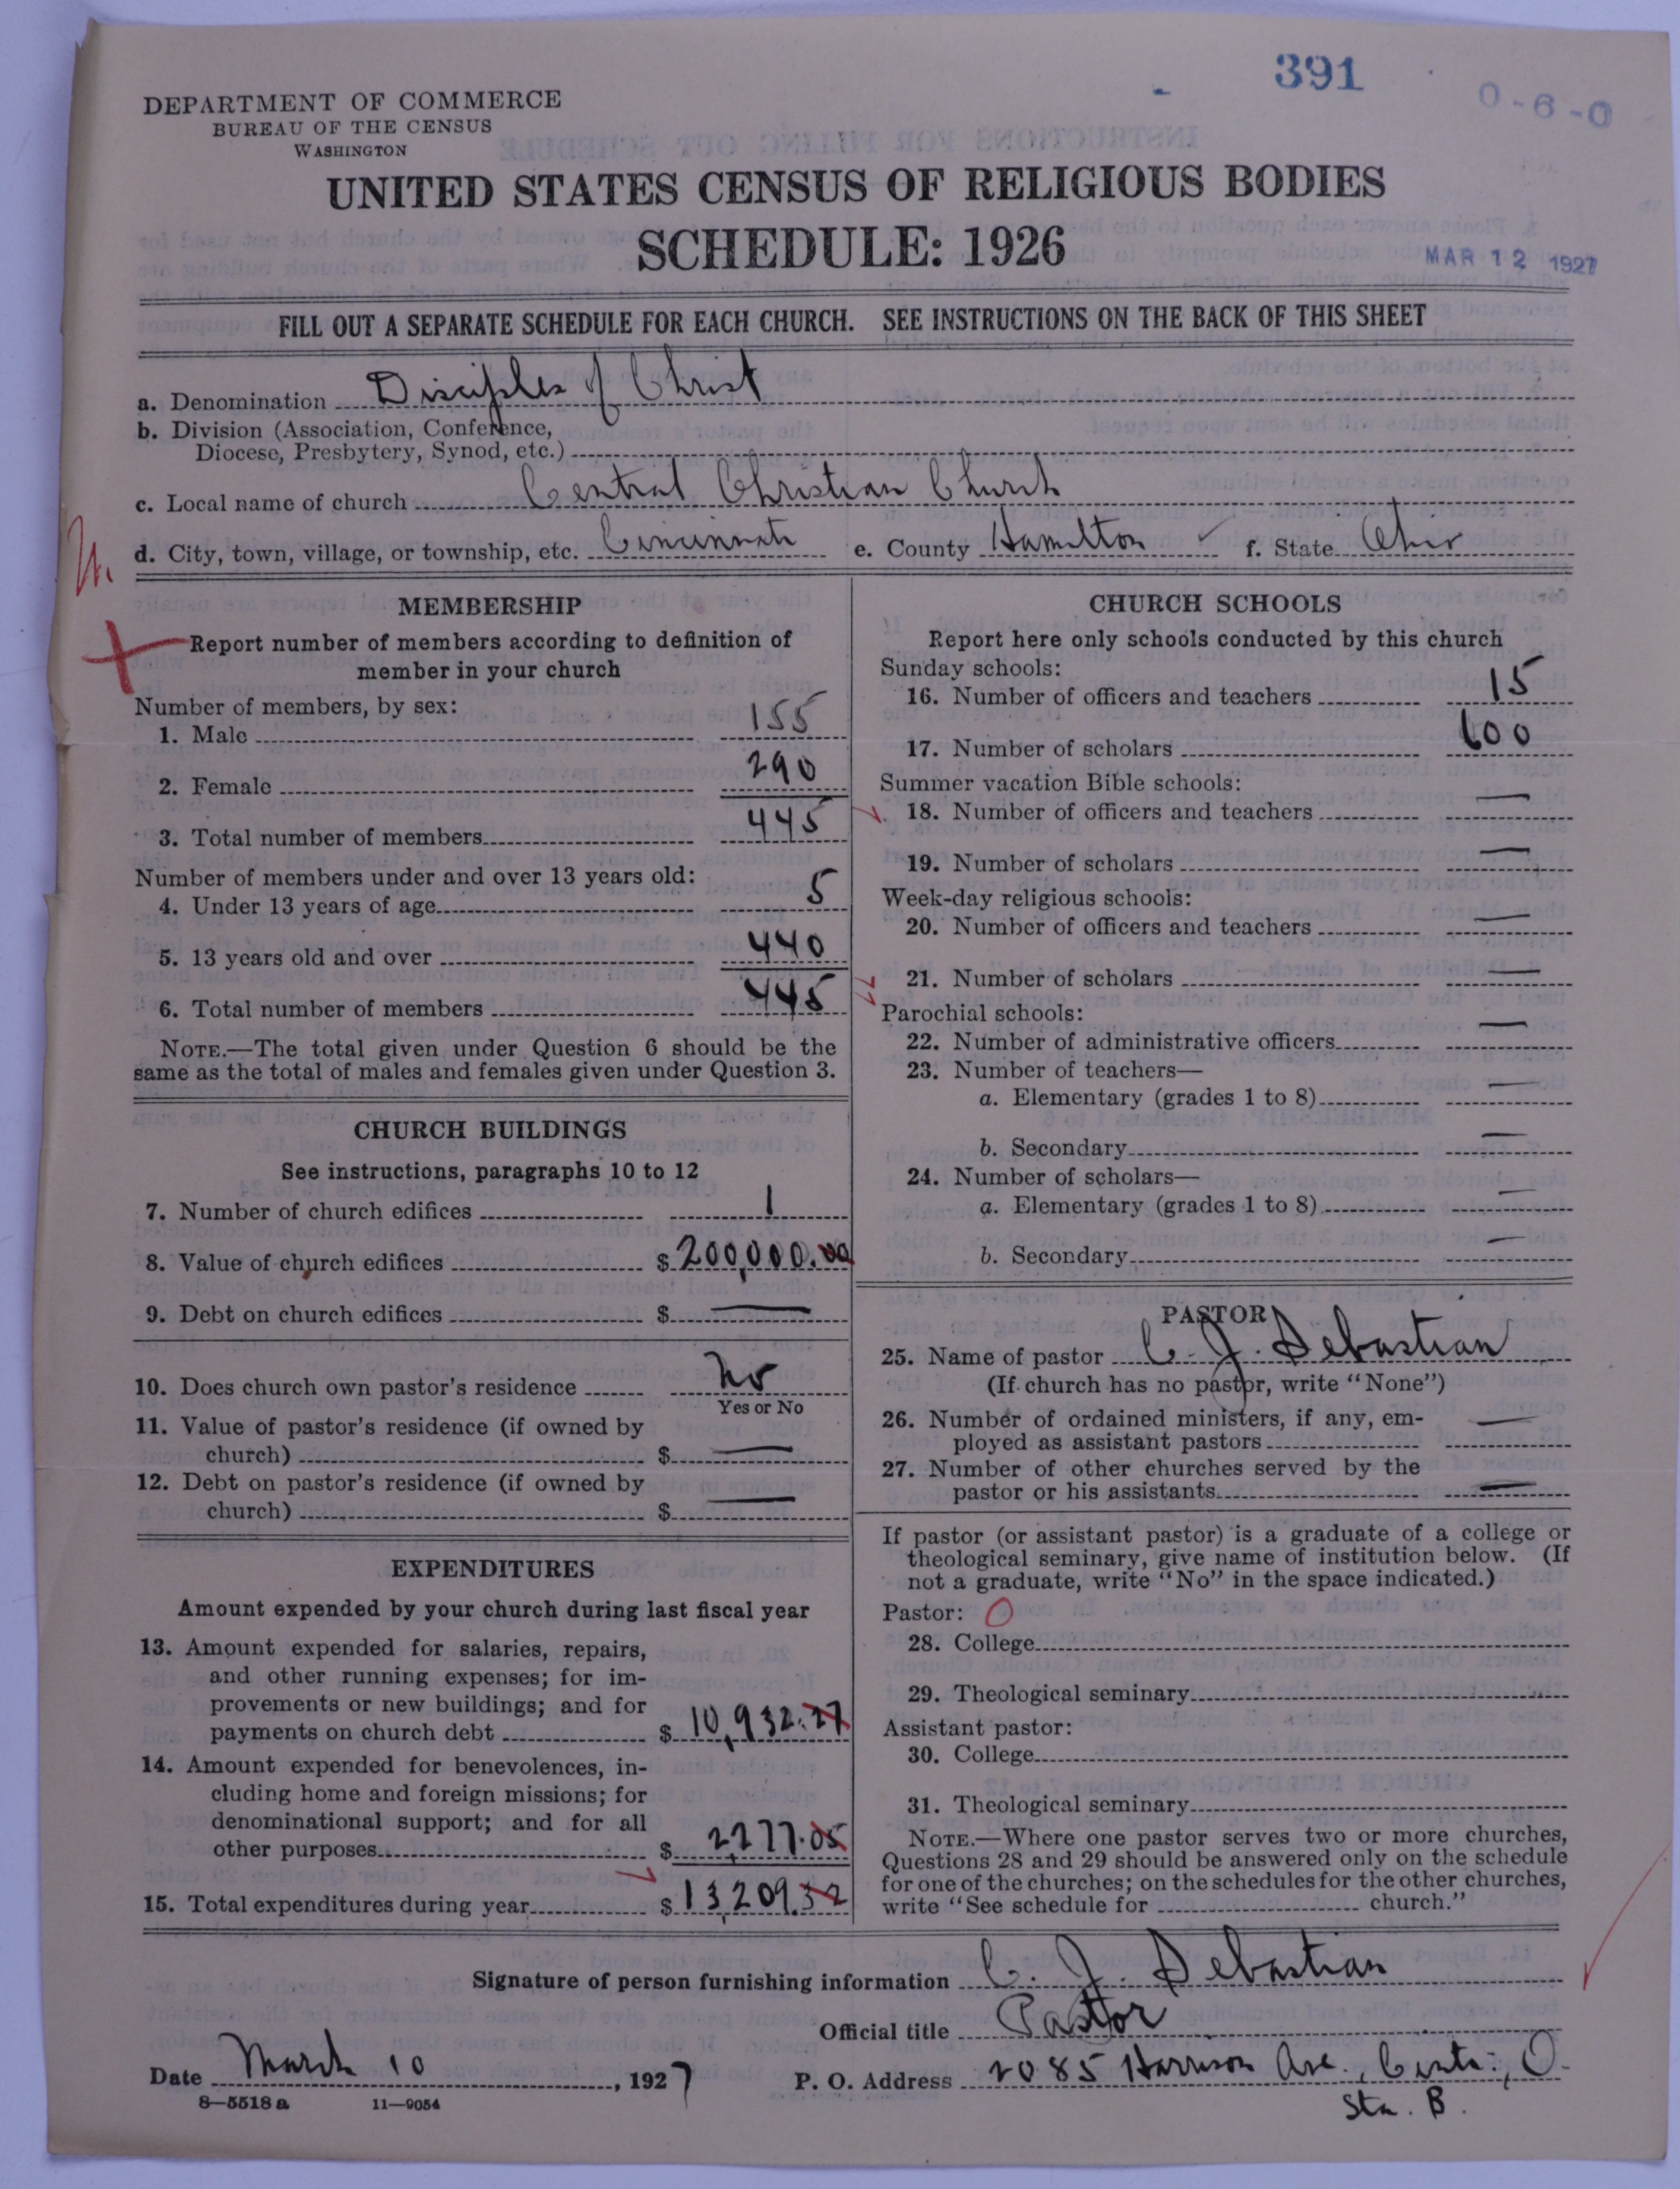 391
0-6-0
DEPARTMENT OF COMMERCE
BUREAU OF THE CENSUS
WASHINGTON
UNITED STATES CENSUS OF RELIGIOUS BODIES
SCHEDULE: 1926
MAR 12 1927
FILL OUT A SEPARATE SCHEDULE FOR EACH CHURCH. SEE INSTRUCTIONS ON THE BACK OF THIS SHEET
a. Denomination Disciples of Christ
b. Division (Association, Conference,
Diocese, Presbytery, Synod, etc.)
c. Local name of church Central Christian Church
d. City, town, village, or township, etc. Cincinnati e. County Hamilton f. State Ohio
MEMBERSHIP
Report number of members according to definition of
member in your church
Number of members, by sex:
1. Male 155
2. Female 290
3. Total number of members 445
Number of members under and over 13 years old:
4. Under 13 years of age 5
5. 13 years old and over 440
6. Total number of members 445
NOTE.—The total given under Question 6 should be the
same as the total of males and females given under Question 3.
CHURCH BUILDINGS
See instructions, paragraphs 10 to 12
7. Number of church edifices 1
8. Value of church edifices $ 200,000.00
9. Debt on church edifices $ —
10. Does church own pastor's residence No
Yes or No
11. Value of pastor's residence (if owned by
church) $ —
12. Debt on pastor's residence (if owned by
church) $ —
EXPENDITURES
Amount expended by your church during last fiscal year
13. Amount expended for salaries, repairs,
and other running expenses; for im-
provements or new buildings; and for
payments on church debt $ 10,932.27
14. Amount expended for benevolences, in-
cluding home and foreign missions; for
denominational support; and for all
other purposes $ 2,277.05
15. Total expenditures during year $ 13,209.32
CHURCH SCHOOLS
Report here only schools conducted by this church
Sunday schools:
16. Number of officers and teachers 15
17. Number of scholars 100
Summer vacation Bible schools:
18. Number of officers and teachers —
19. Number of scholars —
Week-day religious schools:
20. Number of officers and teachers —
21. Number of scholars —
Parochial schools:
22. Number of administrative officers —
23. Number of teachers—
a. Elementary (grades 1 to 8) —
b. Secondary —
24. Number of scholars—
a. Elementary (grades 1 to 8) —
b. Secondary —
PASTOR
25. Name of pastor C. J. Sebastian
(If church has no pastor, write "None")
26. Number of ordained ministers, if any, em-
ployed as assistant pastors —
27. Number of other churches served by the
pastor or his assistants —
If pastor (or assistant pastor) is a graduate of a college or
theological seminary, give name of institution below. (If
not a graduate, write "No" in the space indicated.)
Pastor: O
28. College
29. Theological seminary
Assistant pastor:
30. College
31. Theological seminary
NOTE.—Where one pastor serves two or more churches,
Questions 28 and 29 should be answered only on the schedule
for one of the churches; on the schedules for the other churches,
write "See schedule for church."
Signature of person furnishing information C. J. Sebastian
Official title Pastor
Date March 10, 1927 P. O. Address 2085 Harrison Ave., Cinti., O.
Sta. B.
8—5518 a 11—9054